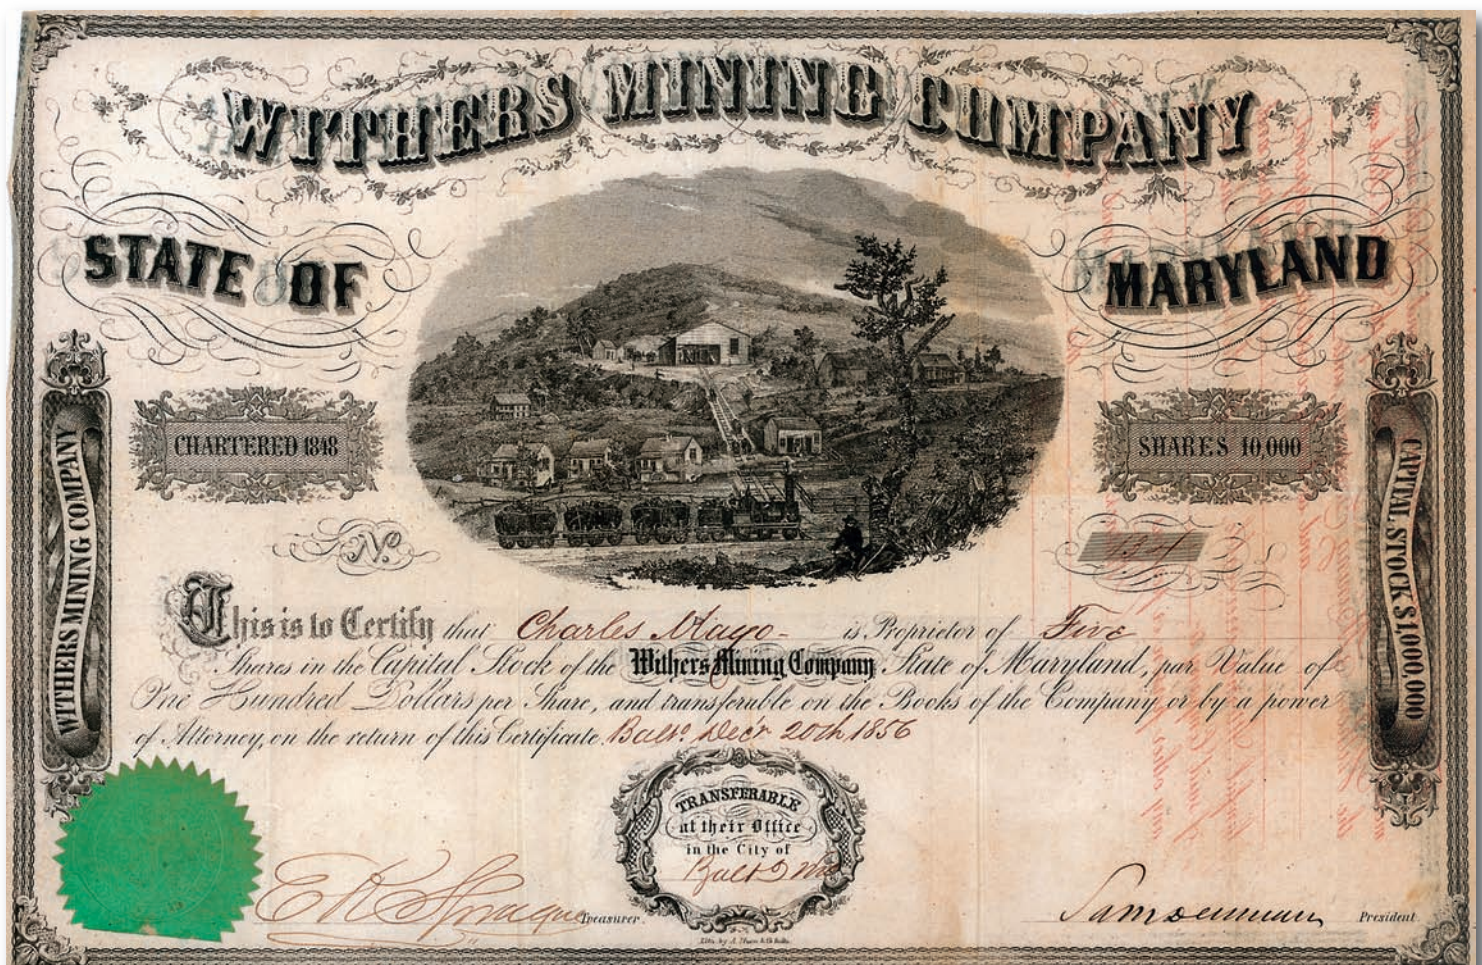 WITHERS MINING COMPANY
STATE OF MARYLAND
CHARTERED 1848
SHARES 10,000
WITHERS MINING COMPANY
CAPITAL STOCK $1,000,000
No.
134
This is to Certify that Charles Mayo - is Proprietor of Five
Shares in the Capital Stock of the Withers Mining Company State of Maryland, par Value of
One Hundred Dollars per Share, and transferable on the Books of the Company or by a power
of Attorney, on the return of this Certificate. Balto. Decr 20th 1856
TRANSFERABLE
at their Office
in the City of
Treasurer.
President.